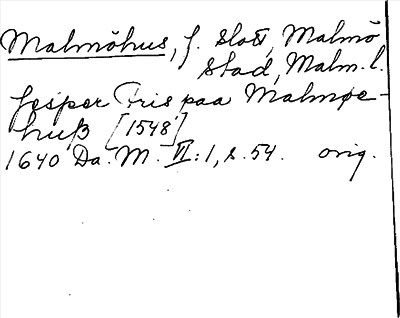 Malmöhus, f. slott, Malmö
stad, Malm. l.
Jesper Friis paa Malmøe-
huß [1548]
1640 Da. M. VI: 1, s. 54. orig.